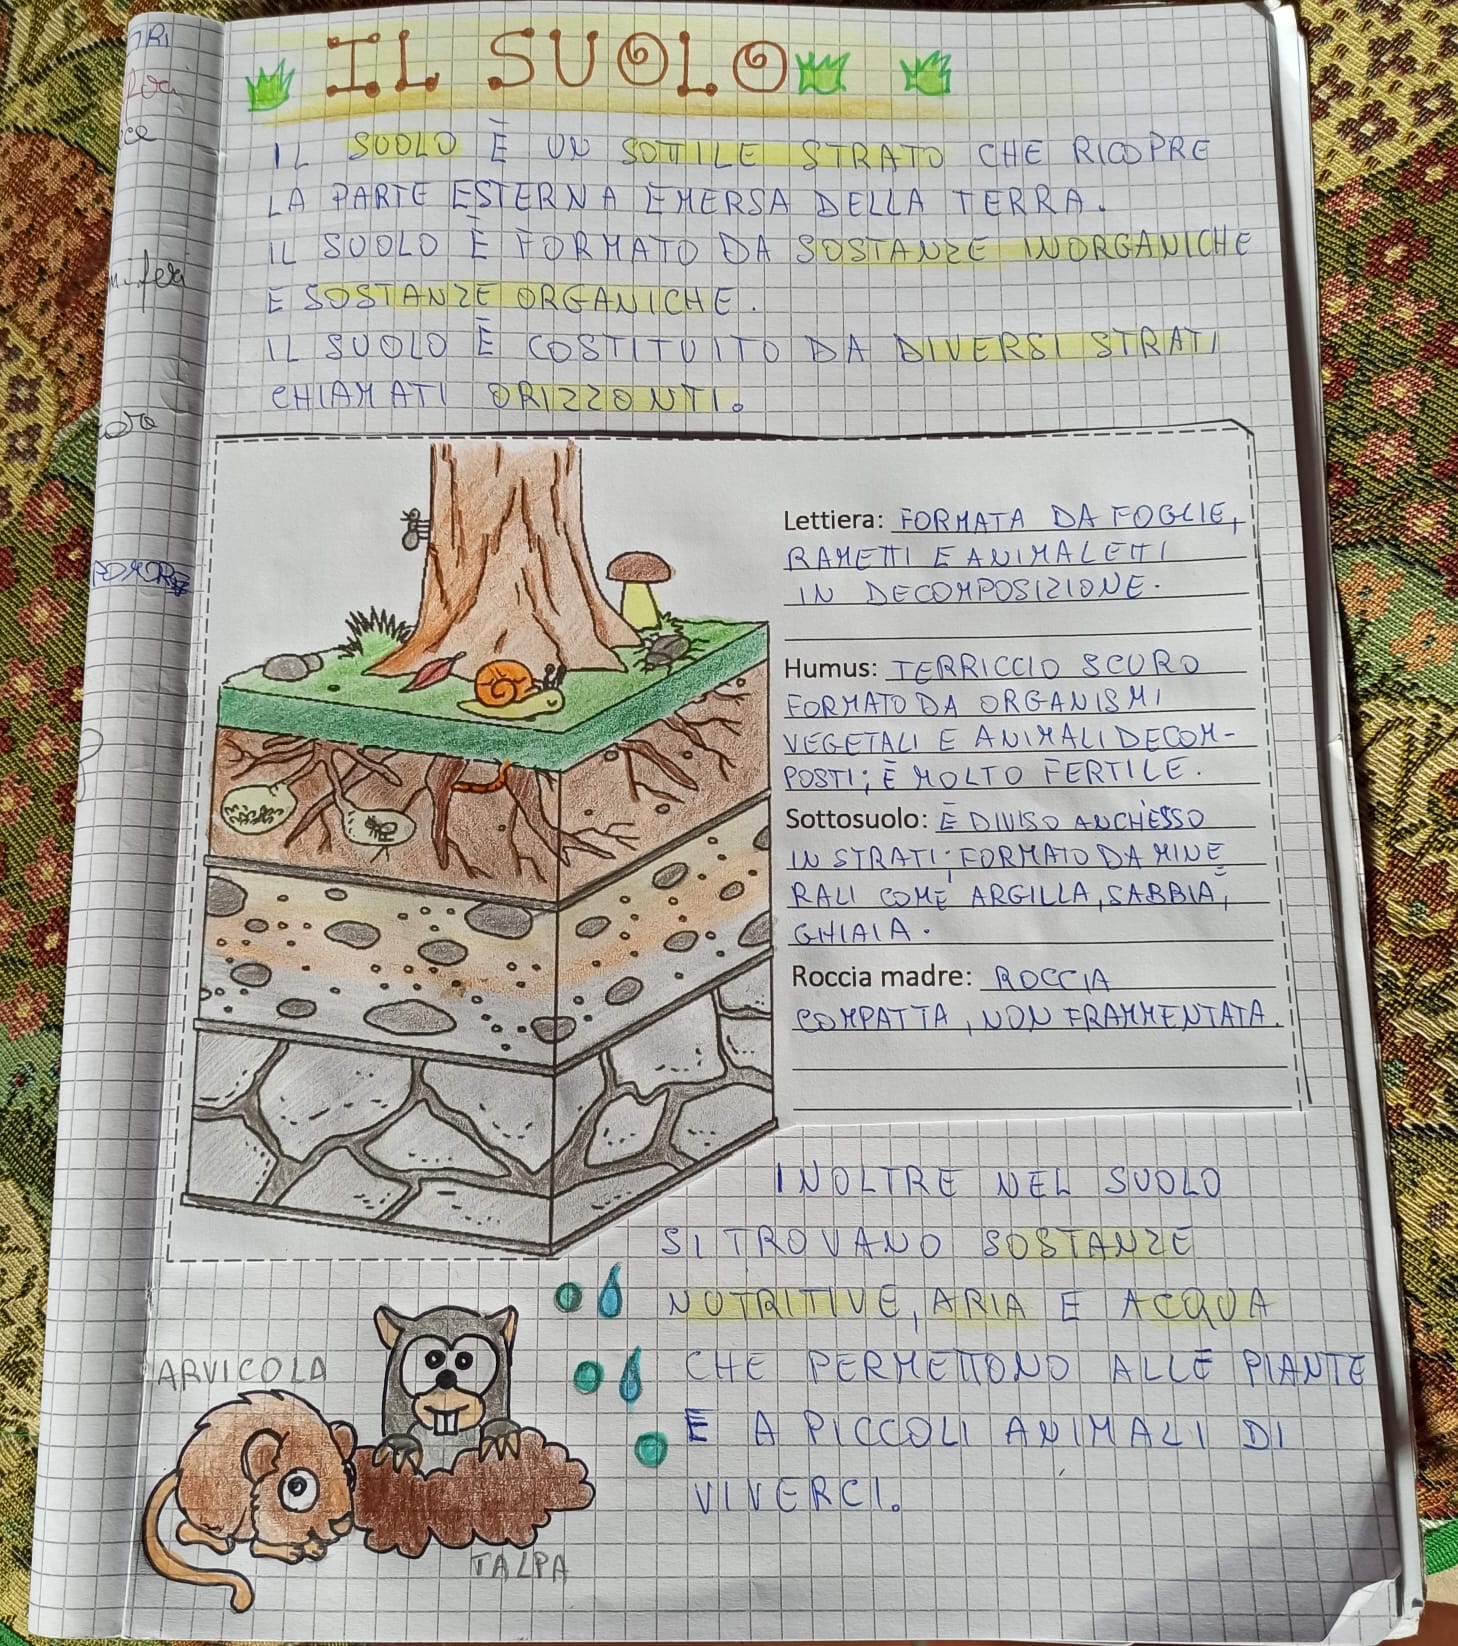 IL SUOLO
IL SUOLO È UN SOTTILE STRATO CHE RICOPRE
LA PARTE ESTERNA EMERSA DELLA TERRA.
IL SUOLO È FORMATO DA SOSTANZE INORGANICHE
E SOSTANZE ORGANICHE.
IL SUOLO È COSTITUITO DA DIVERSI STRATI
CHIAMATI ORIZZONTI.
Lettiera: FORMATA DA FOGLIE,
RAMETTI E ANIMALETTI
IN DECOMPOSIZIONE.
Humus: TERRICCIO SCURO
FORMATO DA ORGANISMI
VEGETALI E ANIMALI DECOM-
POSTI; È MOLTO FERTILE.
Sottosuolo: È DIVISO ANCH'ESSO
IN STRATI; FORMATO DA MINE=
RALI COME, ARGILLA, SABBIA,
GHIAIA.
Roccia madre: ROCCIA
COMPATTA, NON FRAMMENTATA.
INOLTRE NEL SUOLO
SI TROVANO SOSTANZE
NUTRITIVE, ARIA E ACQUA
CHE PERMETTONO ALLE PIANTE
E A PICCOLI ANIMALI DI
VIVERCI.
ARVICOLA
TALPA